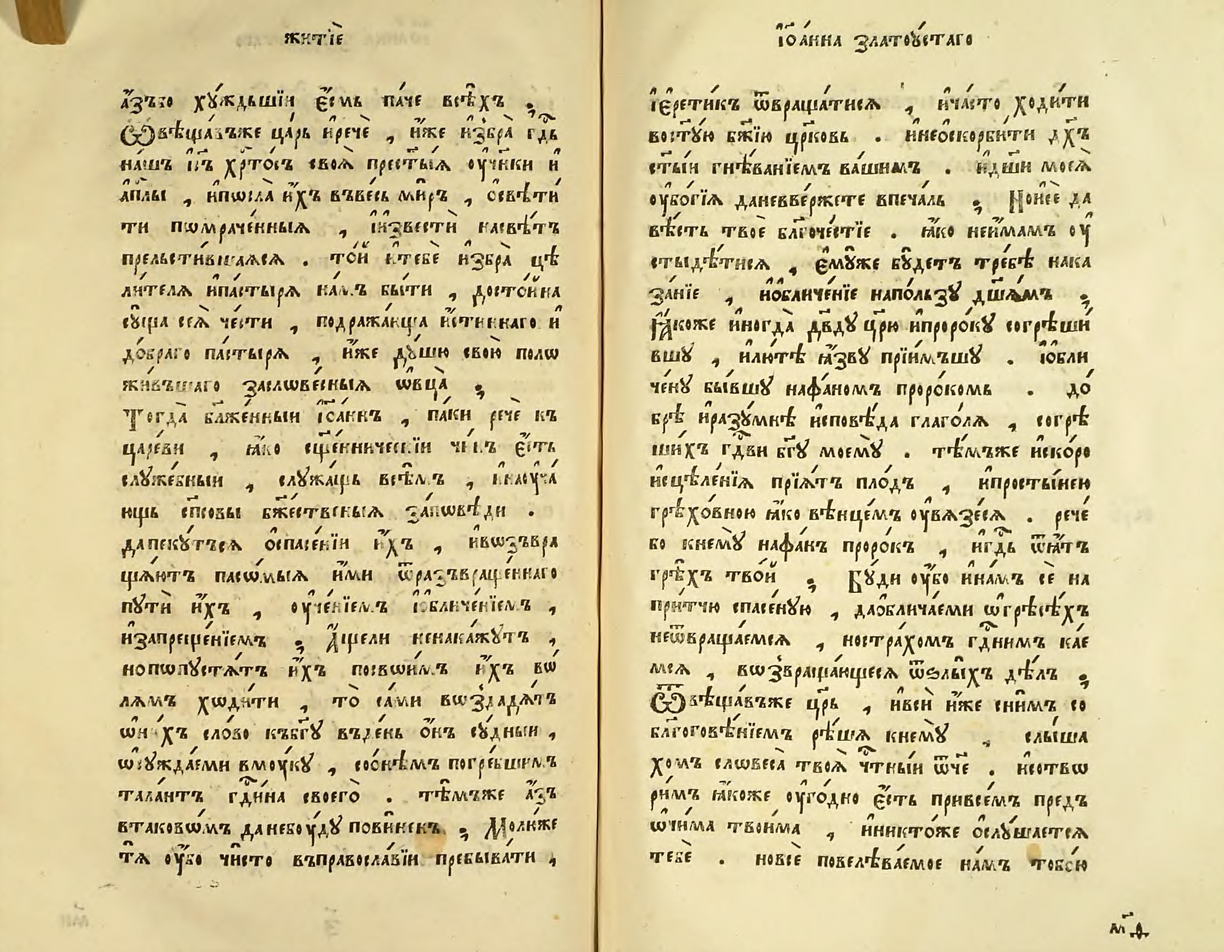 житїе
а҆зъбо хꙋждьшїи є҆смь паче всѣхъ ,
Ѿвѣщавъже царь ирече , иже избра гд҇ь
нашъ і҆с҃ъ хрⷭ҇тосъ своѧ прест҃ыѧ оучн҃ки и
апⷭ҇лы , ипѡсла ихъ въвесь миръ , ѡсвѣти
ти пѡмраченныѧ , иизвести насвѣтъ
прельстившаѧсѧ . той итебе избра цѣ
лителѧ ипастырѧ намъ быти , достойна
сꙋща сеѧ чести , подражающа истиннаго и
добраго пастырѧ , иже дꙋшю свою поло
жившаго засловесныѧ ѡвца ,
Тогда блаженныи і҆ѡаннъ , паки рече къ
цареви , ꙗко сщ҃енническїи чинъ є҆сть
слꙋжебныи , слꙋжащь всѣмъ , инаоуча
ющь сп҃совы бжⷭ҇ественыѧ запѡвѣди .
дапекꙋтъсѧ оспасенїи ихъ , ивѡзъвра
щаютъ пасѡмыѧ ими ѿразъвращеннаго
пꙋти ихъ , оученїемъ іобличенїемъ ,
изапрещенїемъ , Ащели ненакажꙋтъ ,
нопѡпꙋстѧтъ ихъ посвѡимъ ихъ вѡ
лѧмъ хѡдити , то сами вѡздадѧтъ
ѡнихъ слово къбг҃ꙋ въдень онъ сꙋдныи ,
ѡсꙋждаеми вмоукꙋ , сонѣмъ погребшимъ
талантъ гдⷭ҇ина своего . тѣмъже азъ
втаковѡмъ данебоудꙋ повиненъ , Молюже
тѧ оубо чисто въправославїи пребывати ,
і҆ѡанна златоꙋстаго
іеретикъ ѿвращатисѧ , ичасто ходити
востꙋю бж҃їю црк҃овь . инеоскорбити дх҃ъ
ст҃ыи гнѣванїемъ вашимъ . идш҃и моеѧ
оубогїѧ даневвержете впечаль , Ноисе да
вѣсть твое благочестїе . ꙗко неимамъ оу
стыдѣтисѧ , ємꙋже бꙋдетъ требѣ нака
занїе , иобличенїе напользꙋ дш҃амъ ,
Ꙗкоже иногда дв҃дꙋ цр҃ю ипророкꙋ согрѣши
вшꙋ , илютѣ ꙗзвꙋ прїимъшꙋ . іобли
ченꙋ бывшꙋ нафаномъ пророкомь . до
брѣ иразꙋмнѣ исповѣда глаголѧ , согрѣ
шихъ гдⷭ҇ви бг҃ꙋ моемꙋ . тѣмъже искоро
исцѣленїѧ прїѧтъ плодъ , ипростынею
грѣховною ꙗко вѣнцемъ оувѧзесѧ . рече
бо кнемꙋ нафанъ пророкъ , игд҇ь ѿѧтъ
грѣхъ твой , Бꙋди оубо инамъ се на
притчю спасенꙋю , даобличаеми ѡгрѣсѣхъ
неѿвращаемсѧ , нострахомъ гдⷭ҇нимъ кае
мсѧ , вѡзвращающесѧ ѿѕлыхъ дѣлъ ,
Ѿвѣщавъже цр҃ь , ивси иже снимъ со
благоговѣнїемъ рѣшѧ кнемꙋ , слыша
хомъ слѡвеса твоѧ чⷭ҇тныи ѿче . исотвѡ
римъ ꙗкоже оугодно є҆сть привсемъ предъ
ѡчима твоима , иниктоже ослꙋшаетсѧ
тебе . новсе повелѣваемое намъ тобою
м҃д